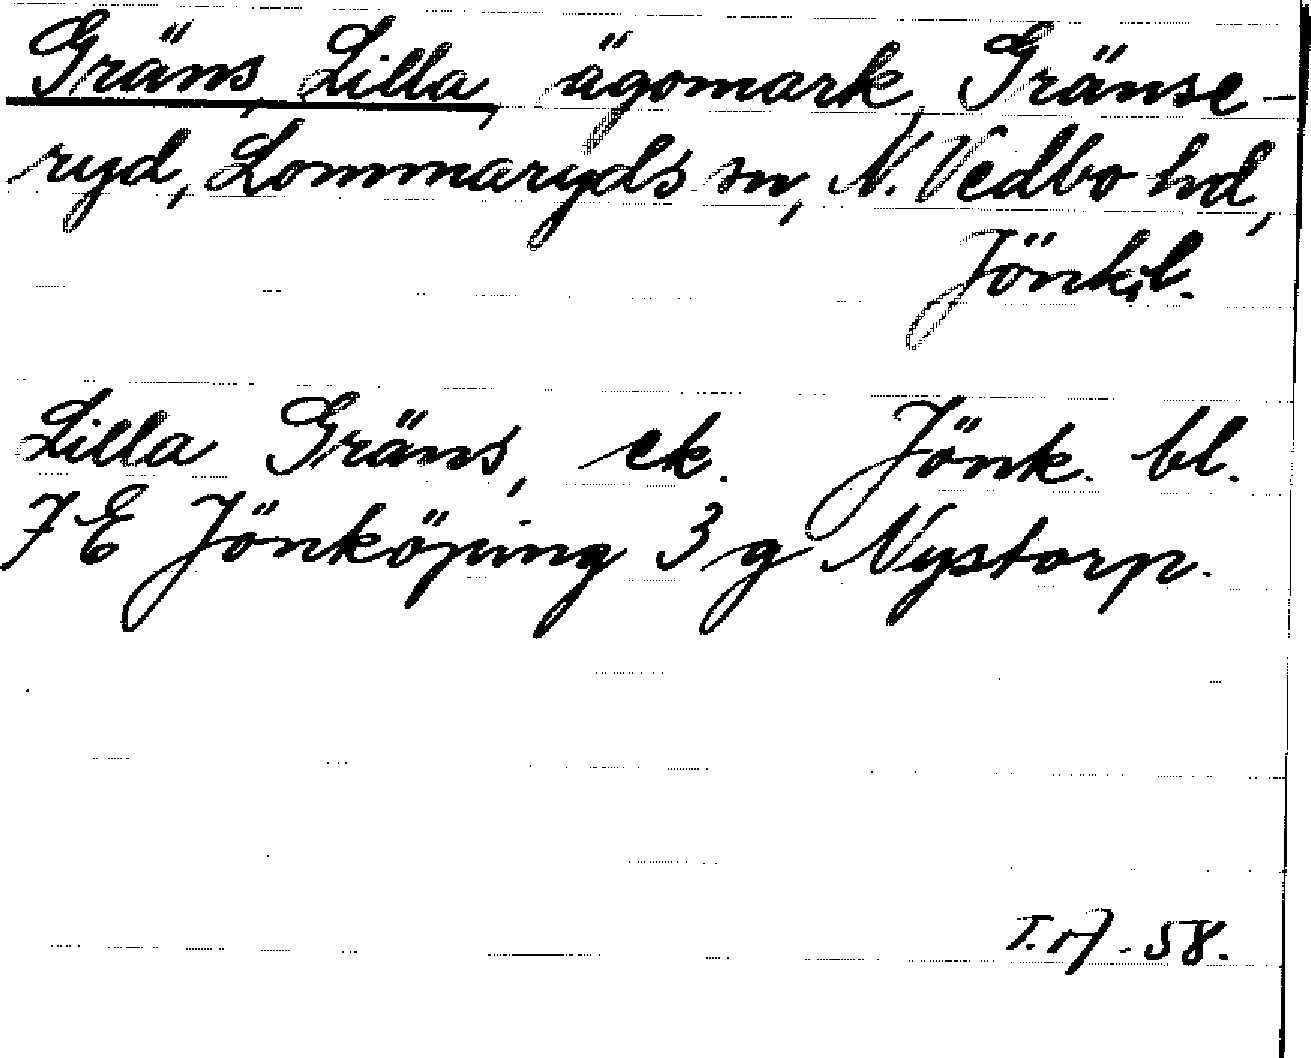 Gräns, Lilla, ägomark, Gränse-
ryd, Lommaryds sn, N. Vedbo hd,
Jönk. l.
Lilla Gräns, ek. Jönk. bl.
7 E Jönköping 3 g Nystorp.
58.